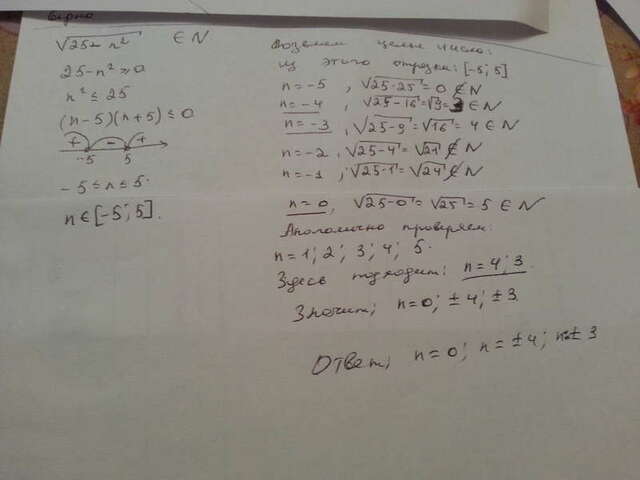 верно
√25-n² ∈ N
25-n² ≥ 0
n² ≤ 25
(n-5)(n+5) ≤ 0
+ - +
-5 5
-5 ≤ n ≤ 5.
n ∈ [-5; 5].
Возьмем целые числа:
из этого отрезка: [-5; 5]
n = -5, √25-25 = 0 ∉ N
n = -4, √25-16 = √9 = 3 ∈ N
n = -3, √25-9 = √16 = 4 ∈ N
n = -2, √25-4 = √21 ∉ N
n = -1, √25-1 = √24 ∉ N
n = 0, √25-0 = √25 = 5 ∈ N
Аналогично проверяем:
n = 1; 2; 3; 4; 5.
Здесь подходит: n = 4; 3.
Значит; n = 0; ±4; ±3.
Ответ; n = 0; n = ±4; n = ±3